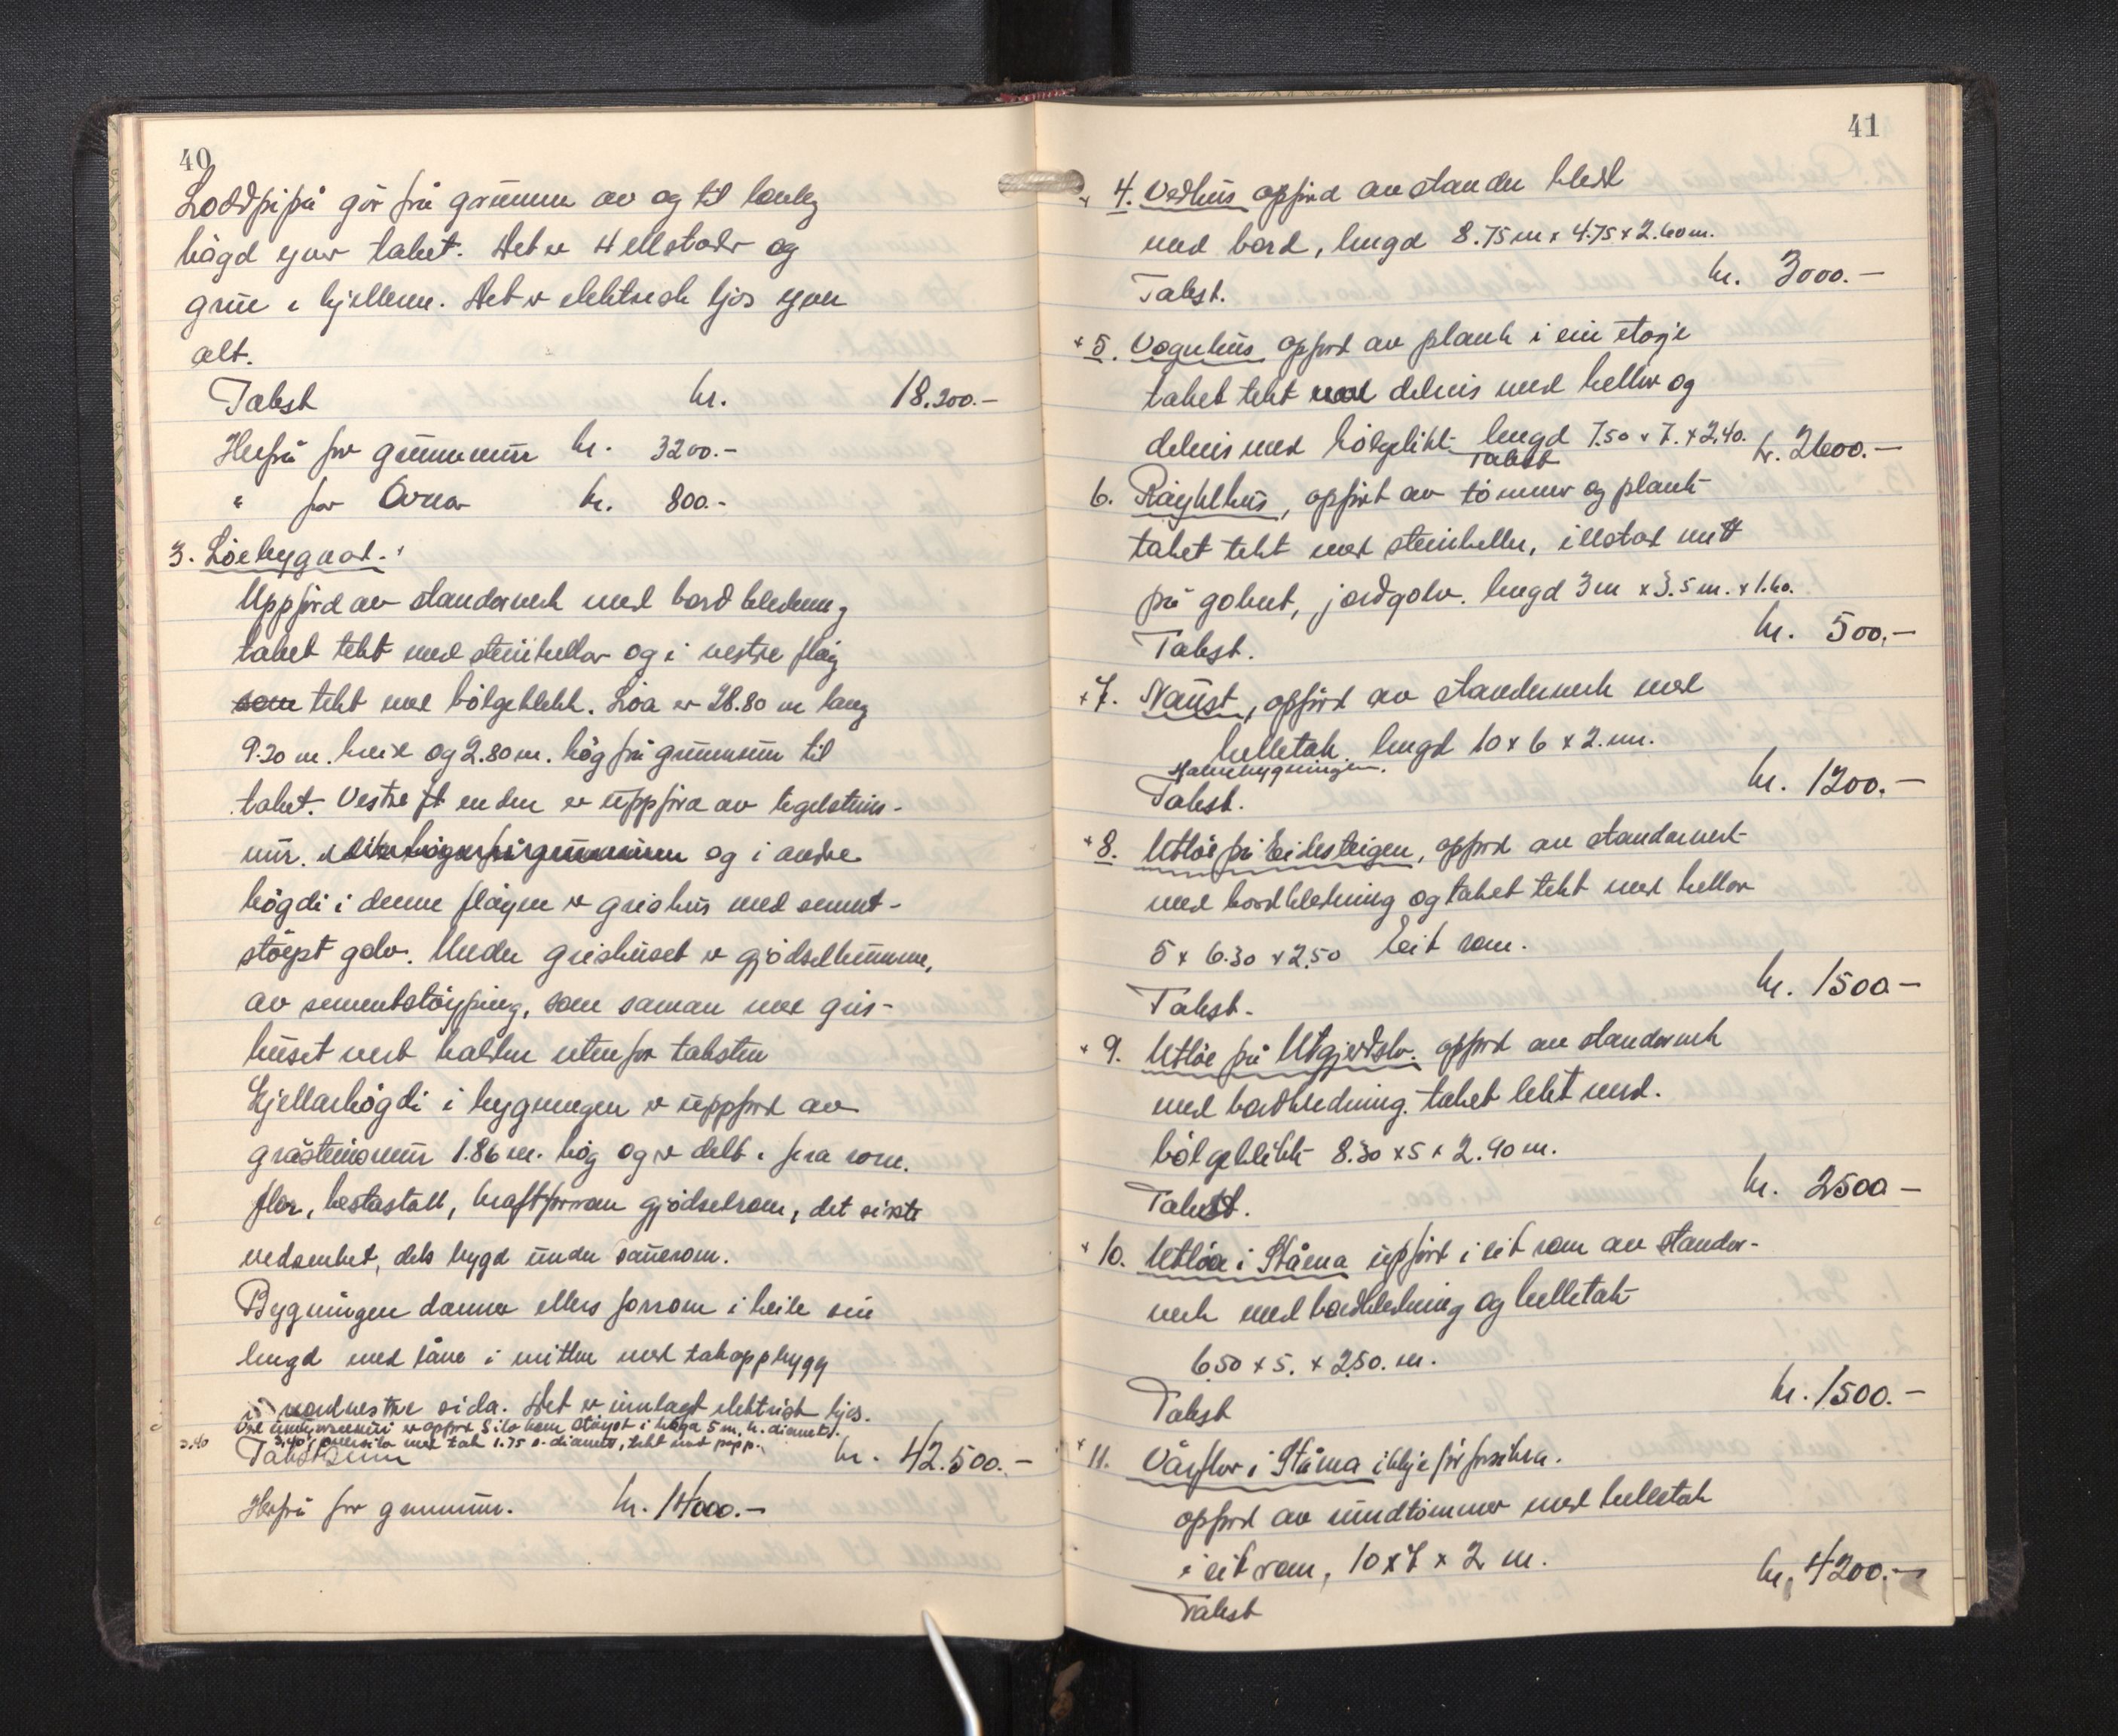 40
Loddpipå går frå grunnen av og til lovleg
høgd yver taket. Det er 4 eldstader og
grue i kjelleren. Det er elektrisk ljos yver
alt.
Takst kr. 18.200.-
Herfrå for grunnmur kr. 3200.-
" for Ovnar kr. 800.-
3. Løebygnad.:
Uppførd av standarverk med bordkledning
taket tekt med steinhellor og i vestre fløy
som tekt med bölgeblekk. Løa er 28.80 m lang
9.20 m. breid og 2.80 m. høg frå grunnmur til
taket. Vestre enden er uppförd av tegelsteins-
mur. og i andre
høgdi i denne fløyen er grishus med sement-
støypt golv. Under grishuset er gjødselkumme,
av sementstøyping, som saman med gris-
huset vert halden utanfor taksten
Kjellarhøgdi i bygningen er uppførd av
gråsteinsmur 1.86 m. høg og er delt i fira rom.
flor, hestastall, kraftforrom gjødselrom, det siste
vedsenket, dels bygd under sauerom.
Bygningen danner ellers forrom i heile sin
lengd med låve i mitten med takoppbygg
i nordvestre sida. Det er innlagt elektrisk ljos.
Ved er oppført Silo som støypt i høgd 5 m. h. diameter.
3.40 3.40, med tak 1.75 s. diameter, tekt med papp.
Takst kr. 42.500.-
Herfrå for grunnmur. kr. 14000.-
41
+ 4. Vedhus oppførd av stander kledd
med bord, lengd 8.75 m x 4.75 x 2.60 m.
Takst. kr. 3000.-
+ 5. Vognhus oppført av plank i ein etasje
taket tekt med delvis med hellor og
delvis med bölgeblikk lengd 7.50 x 7. x 2.40.
Takst kr. 2600.-
6. Røykhus, oppført av tömmer og plank
taket tekt med steinhellor, illstad mitt
på golvet, jordgolv. lengd 3 m x 3.5 m. x 1.60.
Takst. kr. 500.-
+ 7. Naust, oppførd av standerverk med
helletak. lengd 10 x 6 x 2. m.
Takst. kr. 1200.-
+ 8. Utløe på Eidsteigen, oppførd av standarverk
med bordkledning og taket tekt med hellor
5 x 6.30 x 2.50 Eit rom.
Takst. kr. 1500-
+ 9. Utløe på Utgjerdslv. oppførd av standarverk
med bordkledning. taket tekt med.
bølgeblikk 8.30 x 5 x 2.90 m.
Takst. kr. 2500-
+ 10. Utløa i Ståma uppført i eit rom av stander-
verk med bordkledning og helletak
6.50 x 5. x 2.50. m.
Takst kr. 1500.-
+ 11. Vårflor i Ståma ikkje før forsikra.
oppførd av rundtömmer med helletak
i eit rom, 10 x 7 x 2 m.
Takst kr. 4200.-